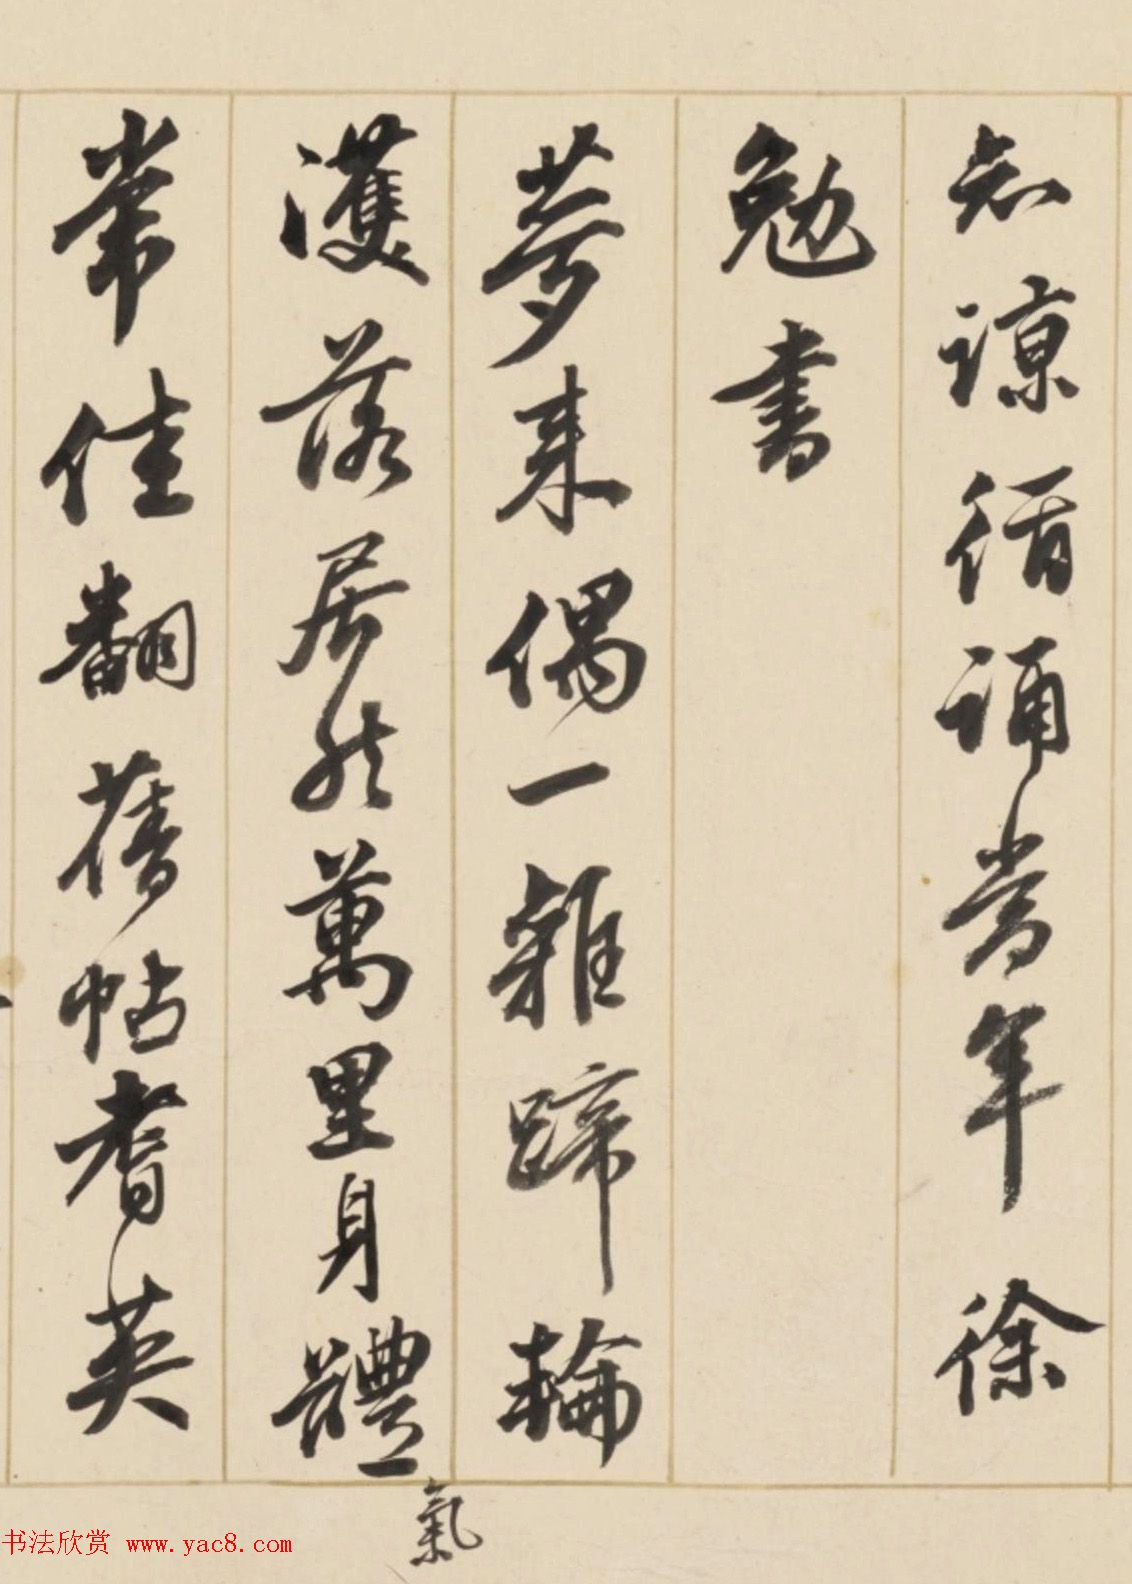 知諒循誦當年徐
勉書
夢來偶一雜蹄輪
濩落居然萬里身體
氣
常佳翻舊帖耆英
书法欣赏 www.yac8.com